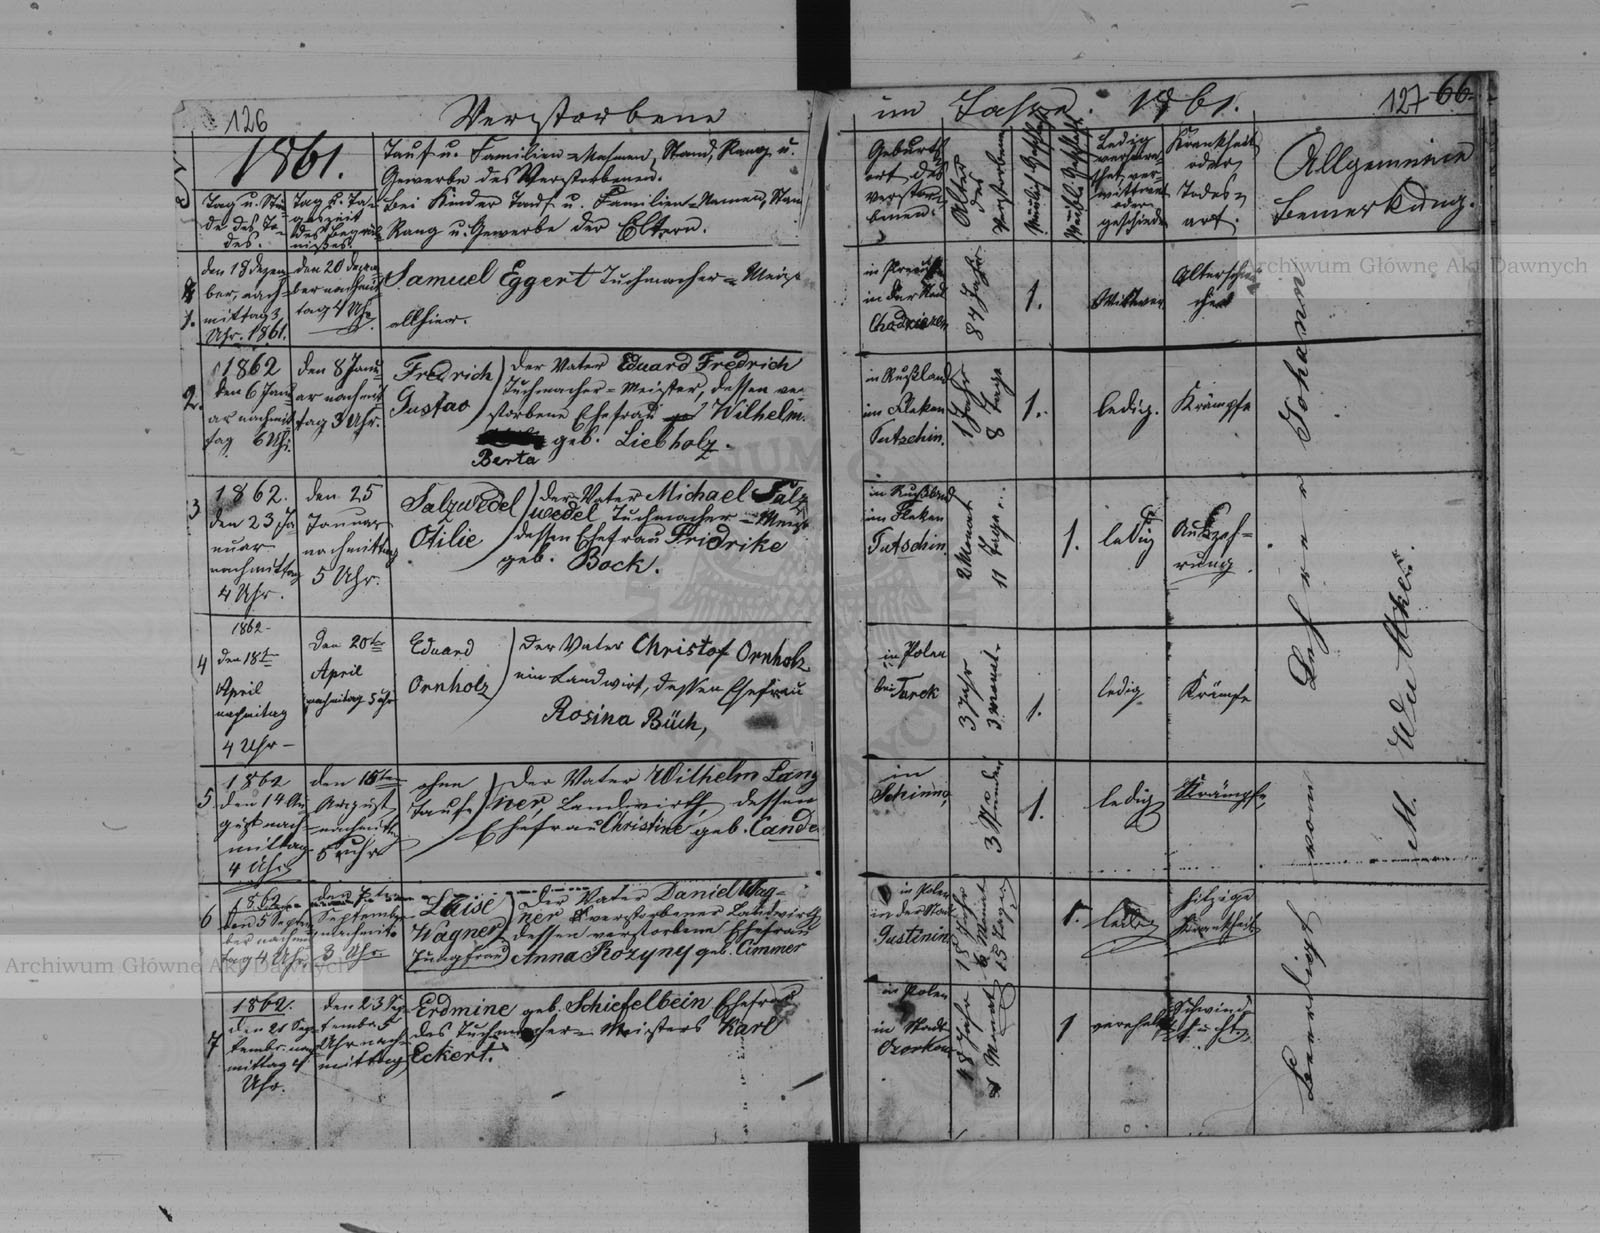 126
Verstorbene
im Jahre. 1861.
127 66
No
1861.
Tag u. Stun-
de des To-
des.
Tag u. Ta-
geszeit
des Begräb-
nißes.
Tauf u. Familien-Nahmen, Stand, Rang u.
Gewerbe des Verstorbenen.
bei Kinder Tauf u. Familien-Namen, Stan
Rang u. Gewerbe der Eltern.
Geburts
ort des
verstor-
benen.
Alter
des
Verstorbenen
Männlich Geschlecht
Weibli. Geschlecht
Ledig
verheira-
thet, ver-
wittwet
oder
geschieden
Krankheit
oder
Todes-
art.
Allgemeine
Bemerkung.
1.
den 18 Dezem-
ber, nach-
mittag 3
Uhr. 1861.
den 20 Dezem-
ber nachmit-
tag 4 Uhr.
Samuel Eggert Tuchmacher-Meist
allhier.
in Preuß
in der Stad
Chodziezen
84 Jahr
1.
Wittwer
Altersschwä-
che
2.
1862
den 6 Janu-
ar nachmit
tag 6 Uhr.
den 8 Janu-
ar nachmit
tag 3 Uhr.
Fredrich
Gustav
der Vater Eduard Fredrich
Tuchmacher-Meister, dessen ve-
storbene Ehefrau Wilhelm.
geb. Liebholz.
Berta
in Rußland
im Fleken
Tutschin.
1 Jahr
8 Tage
1.
ledig.
Krämpfe
3
1862.
den 23 Ja
nuar
nachmittag
4 Uhr.
den 25
Januar
nachmittag
5 Uhr.
Salzwedel
Otilie
der Vater Michael Salz
wedel Tuchmacher-Meist
dessen Ehefrau Fridrike
geb. Bock.
in Rußland
im Fleken
Tutschin.
2 Monat
11 Tage
1.
ledig
Auszeh-
rung.
4
1862-
den 18te
April
nachmitag
4 Uhr-
den 20te
April
nachmitag 5 Uhr
Eduard
Ornholz
der Vater Christof Ornholz
ein Landwirt, dessen Ehefrau
Rosina Büch,
in Polen
bei Turek
3 Jahr
3 Monat
1.
ledig
Krämpfe
5.
1862
den 14 Au
gust nach-
mittag
4 Uhr
den 16ten
August
nachmittag
5 uhr
ohne
Taufe
der Vater Wilhelm Lang
ner, Landwirth, dessen
Ehefrau Christine geb. Cande
in
Schinno,
3 Stunden
1.
ledig
Krämpfe
6
1862
den 5 Septem
ber nachmit
tag 4 Uhr.
den 7ten
September
nachmit
3 Uhr.
Luise
Wagner
Jungfrau
Der Vater Daniel Wag-
ner verstorbener Landwirth
dessen verstorbene Ehefrau
Anna Rozyny geb. Cimmer
in Polen
in der Stad
Justinin
18 Jahr
6 Monat
15 Tage
1.
ledig
hitzige
Krankheit
7
1862.
den 21 Sep-
tembr. nach
mittag 4
Uhr.
den 23 Sep-
tembr. 5
Uhr nach-
mittag
Erdmine geb. Schiefelbein Ehefrau
des Tuchmacher-Meisters Karl
Eckert.
in Polen
in Stadt
Ozorkow
48 Jahr
Monat
1
verehelt
Schwind
sucht.
Beerdigt vom Lehrer Johann
M. Wu
Archiwum Główne Akt Dawnych
Archiwum Główne Akt Dawnych